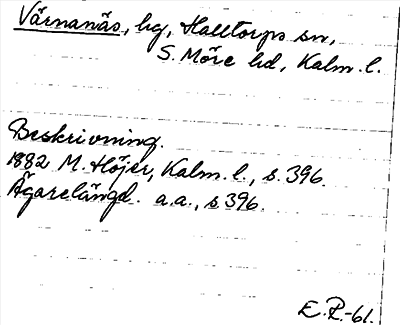 Värnanäs, hg, Halltorps sn,
S. Möre hd, Kalm. l.
Beskrivning.
1882 M. Höjer, Kalm. l., s. 396.
Ägarelängd. a.a., s 396.
E.P.-61.